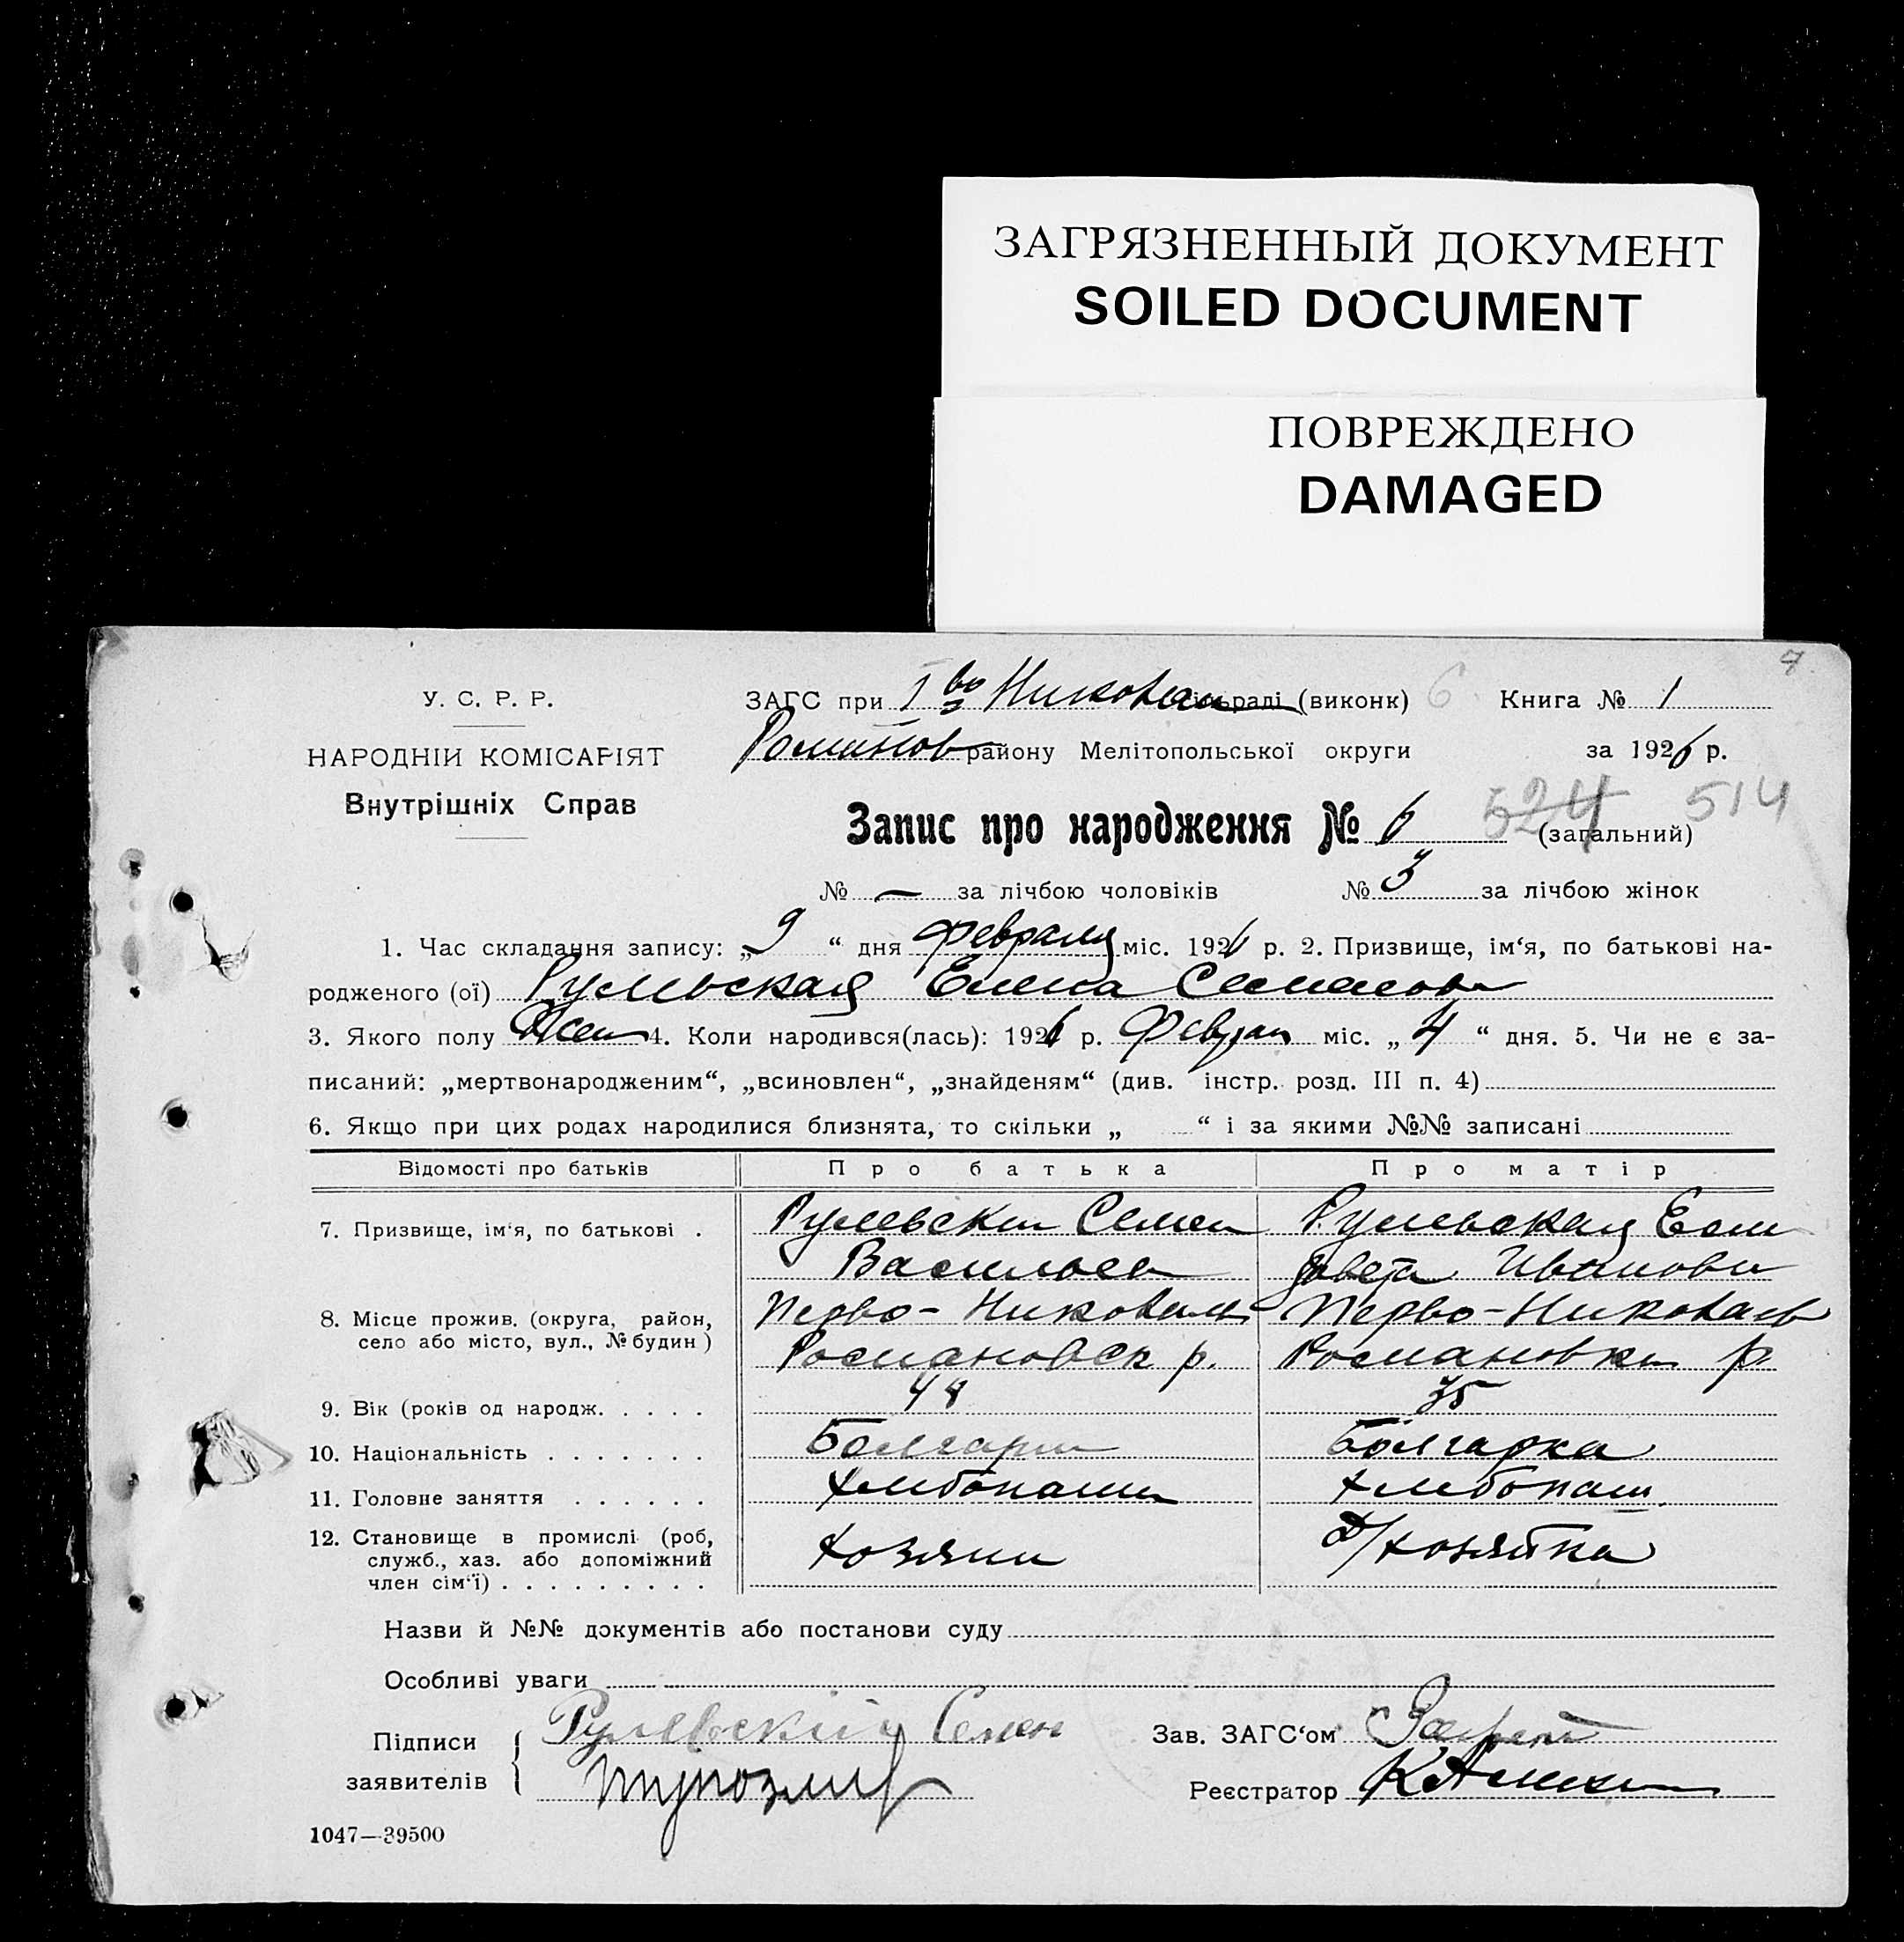 ЗАГРЯЗНЕННЫЙ ДОКУМЕНТ
SOILED DOCUMENT
ПОВРЕЖДЕНО
DAMAGED
7
У. С. Р. Р.
НАРОДНІЙ КОМІСАРІЯТ
Внутрішніх Справ
ЗАГС при 1во Николаев сільраді (виконк) 6 Книга № 1
Романов району Мелітопольської округи за 1926 р.
Запис про народження № 6 524 (загальний) 514
№ — за лічбою чоловіків № 3 за лічбою жінок
1. Час складання запису: „9“ дня февраля міс. 1926 р. 2. Призвище, ім‘я, по батькові на-
родженого (ої) Рулевская Елена Семенова
3. Якого полу Жен 4. Коли народився(лась): 1926 р. Феврал міс. „4“ дня. 5. Чи не є за-
писаний: „мертвонародженим“, „всиновлен“, „знайденям“ (див. інстр. розд. III п. 4)
6. Якщо при цих родах народилися близнята, то скільки „ “ і за якими №№ записані
Відомості про батьків Про батька Про матір
7. Призвище, ім‘я, по батькові . Рулевский Семен Рулевская Ели
Васильев завета Иванова
8. Місце прожив. (округа, район, село або місто, вул., № будин) Перво-Николаев Перво-Николаев
Романовск р. Романовка р.
9. Вік (років од народж. . . . . 48 35
10. Національність . . . . . . . Болгарин Болгарка
11. Головне заняття . . . . . . Хлебопашец Хлебопаш.
12. Становище в промислі (роб, служб., хаз. або допоміжний член сім‘ї) . . . . . . . . . Хозяин д/хозяйка
Назви й №№ документів або постанови суду
Особливі уваги
Підписи заявителів Рулевский Семен
Зав. ЗАГС‘ом
Реєстратор
1047—39500